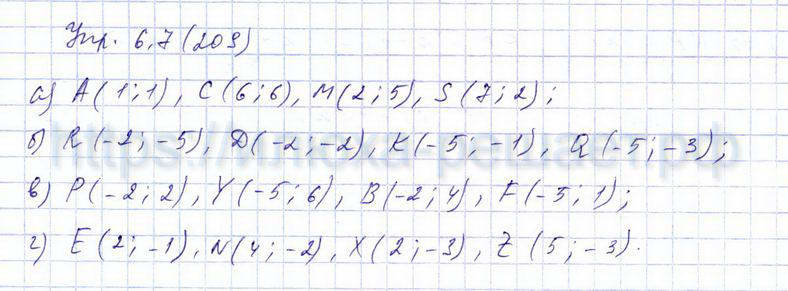 Упр. 6.7 (209)
а) A(1;1), C(6;6), M(2;5), S(7;2);
б) R(-2;-5), D(-2;-2), K(-5;-1), Q(-5;-3);
в) P(-2;2), Y(-5;6), B(-2;4), F(-5;1);
г) E(2;-1), N(4;-2), X(2;-3), Z(5;-3).